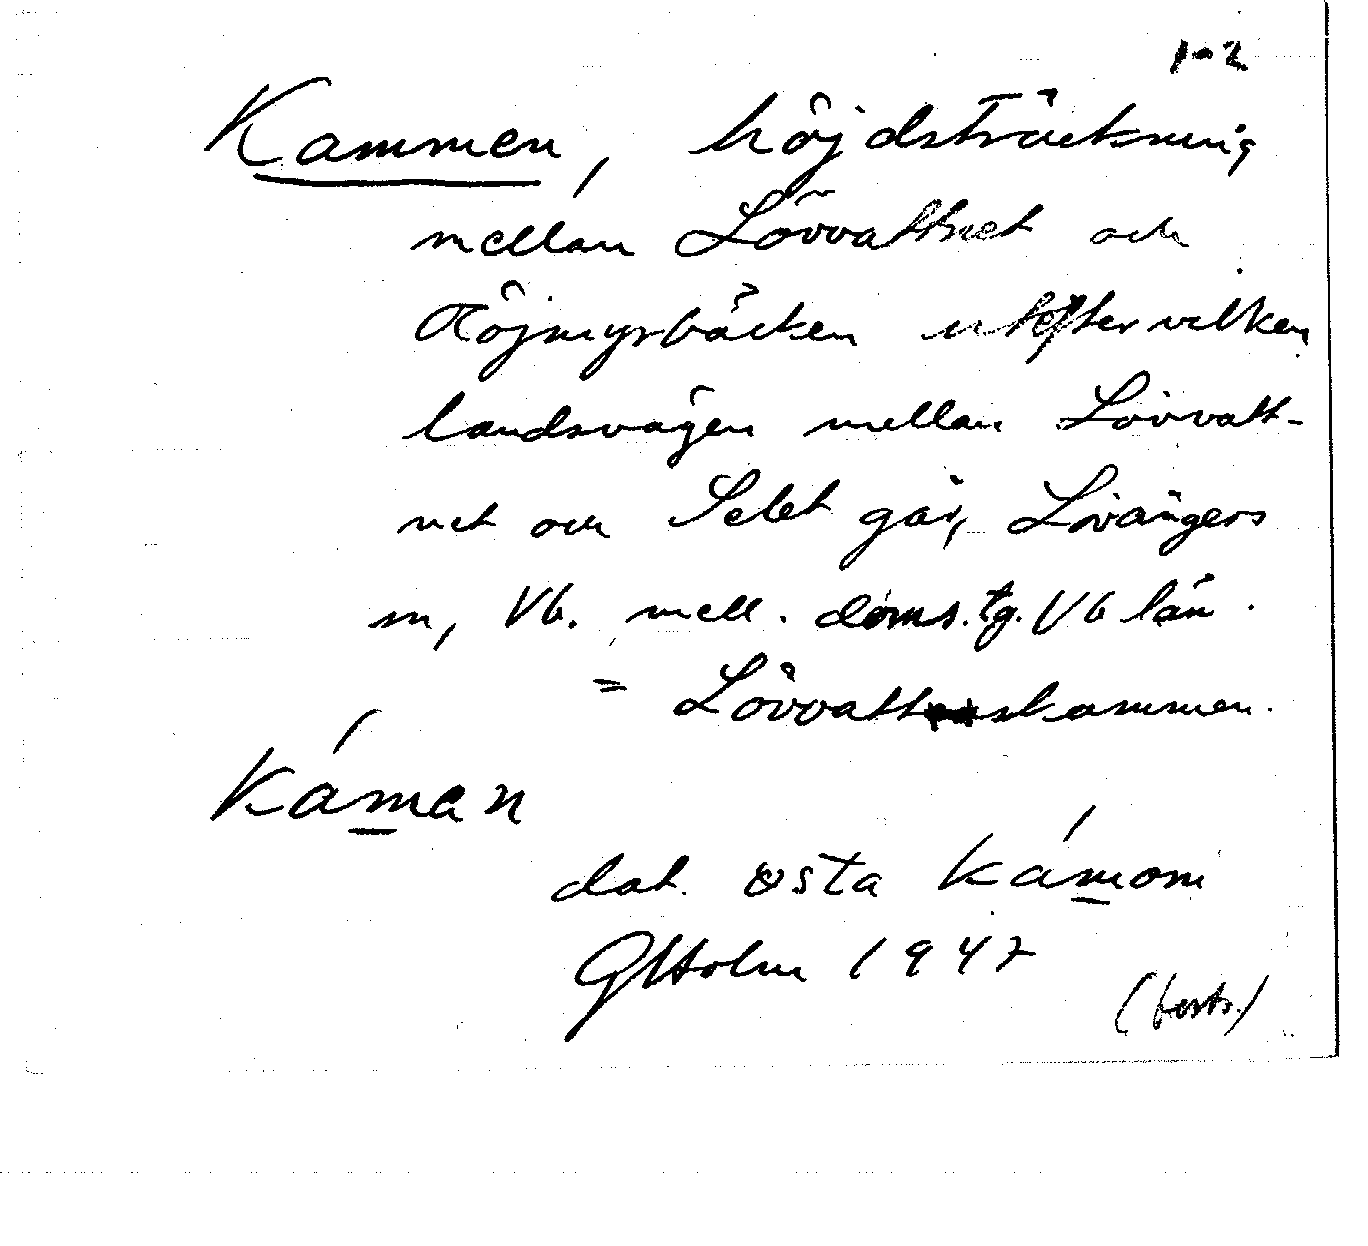 1-2
Kammen, höjdsträckning
mellan Lövvattnet och
Röjmyrbäcken utefter vilken
landsvägen mellan Lövvatt-
net och Selet går, Lövångers
sn, Vb. mell. doms.tg. Vb län.
= Lövvattskammen.
káman
dat. østa kámom
GHolm 1947
(forts.)